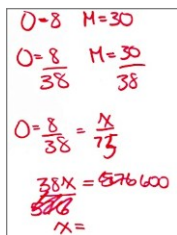 O=8 M=30
O=8/38 M=30/38
O=8/38 = x/75
38x = 600
x=